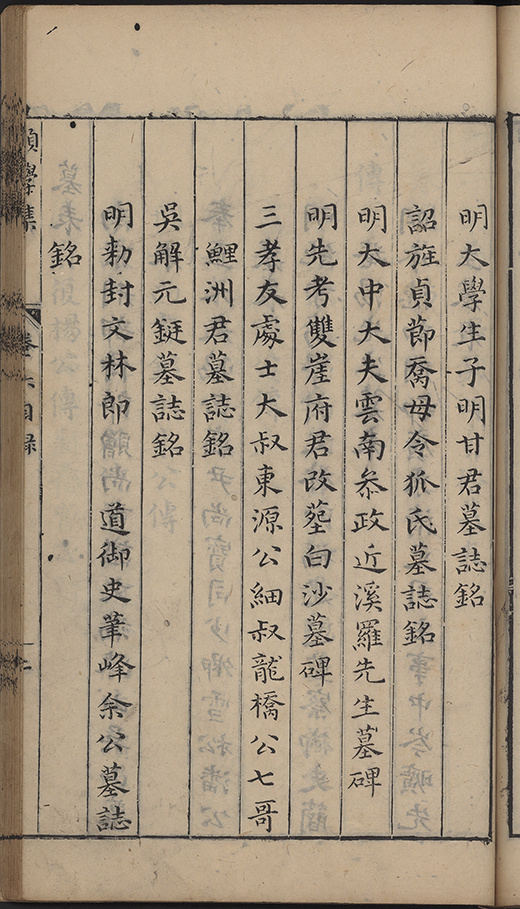 明大學生子明甘君墓誌銘
詔旌貞節喬母令狐氏墓誌銘
明大中大夫雲南叅政近溪羅先生墓碑
明先考雙崖府君改塟白沙墓碑
三孝友處士大叔東源公細叔龍橋公七哥
鯉洲君墓誌銘
吳解元鋌墓誌銘
明勑封文林郎 道御史筆峰余公墓誌
銘
學集 卷六目録